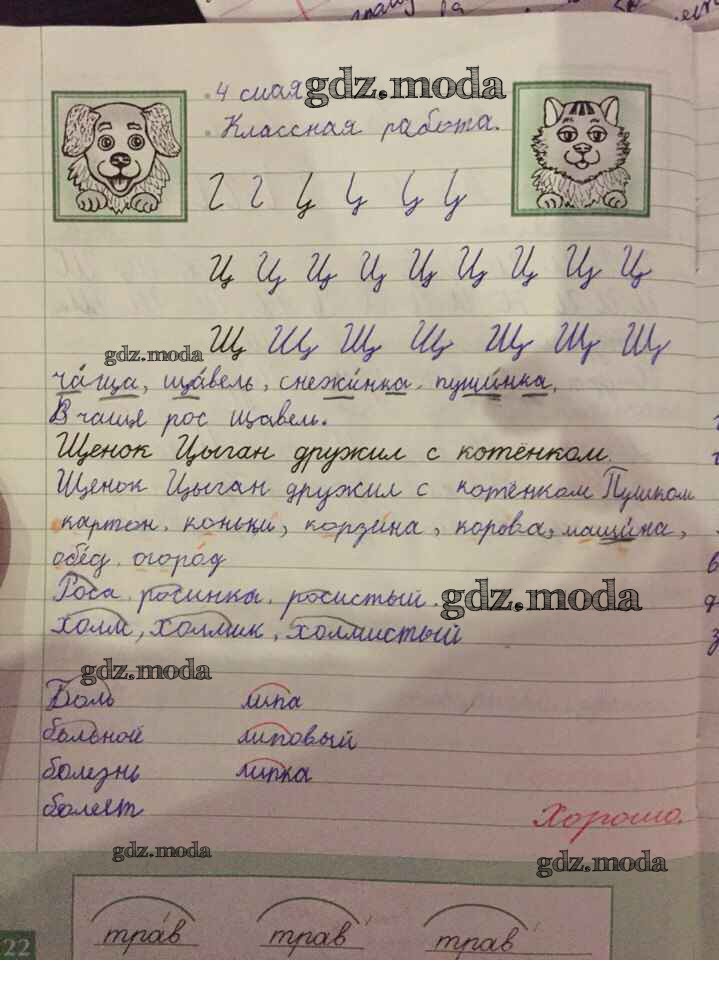 4 мая. gdz.moda
Классная работа.
Ц Ц Ц Ц Ц Ц Ц Ц Ц
gdz.moda
Щ Щ Щ Щ Щ Щ Щ
чаща, щавель, снежинка, пушинка.
В чаще рос щавель.
Щенок Цыган дружил с котёнком.
Щенок Цыган дружил с котёнком Пушком
картон, коньки, корзина, корова, машина,
обед, огород
Роса, росинка, росистый. gdz.moda
холм, холмик, холмистый
gdz.moda
Боль липа
больной липовый
болезнь липка
болеет
Хорошо.
gdz.moda gdz.moda
22 трав трав трав